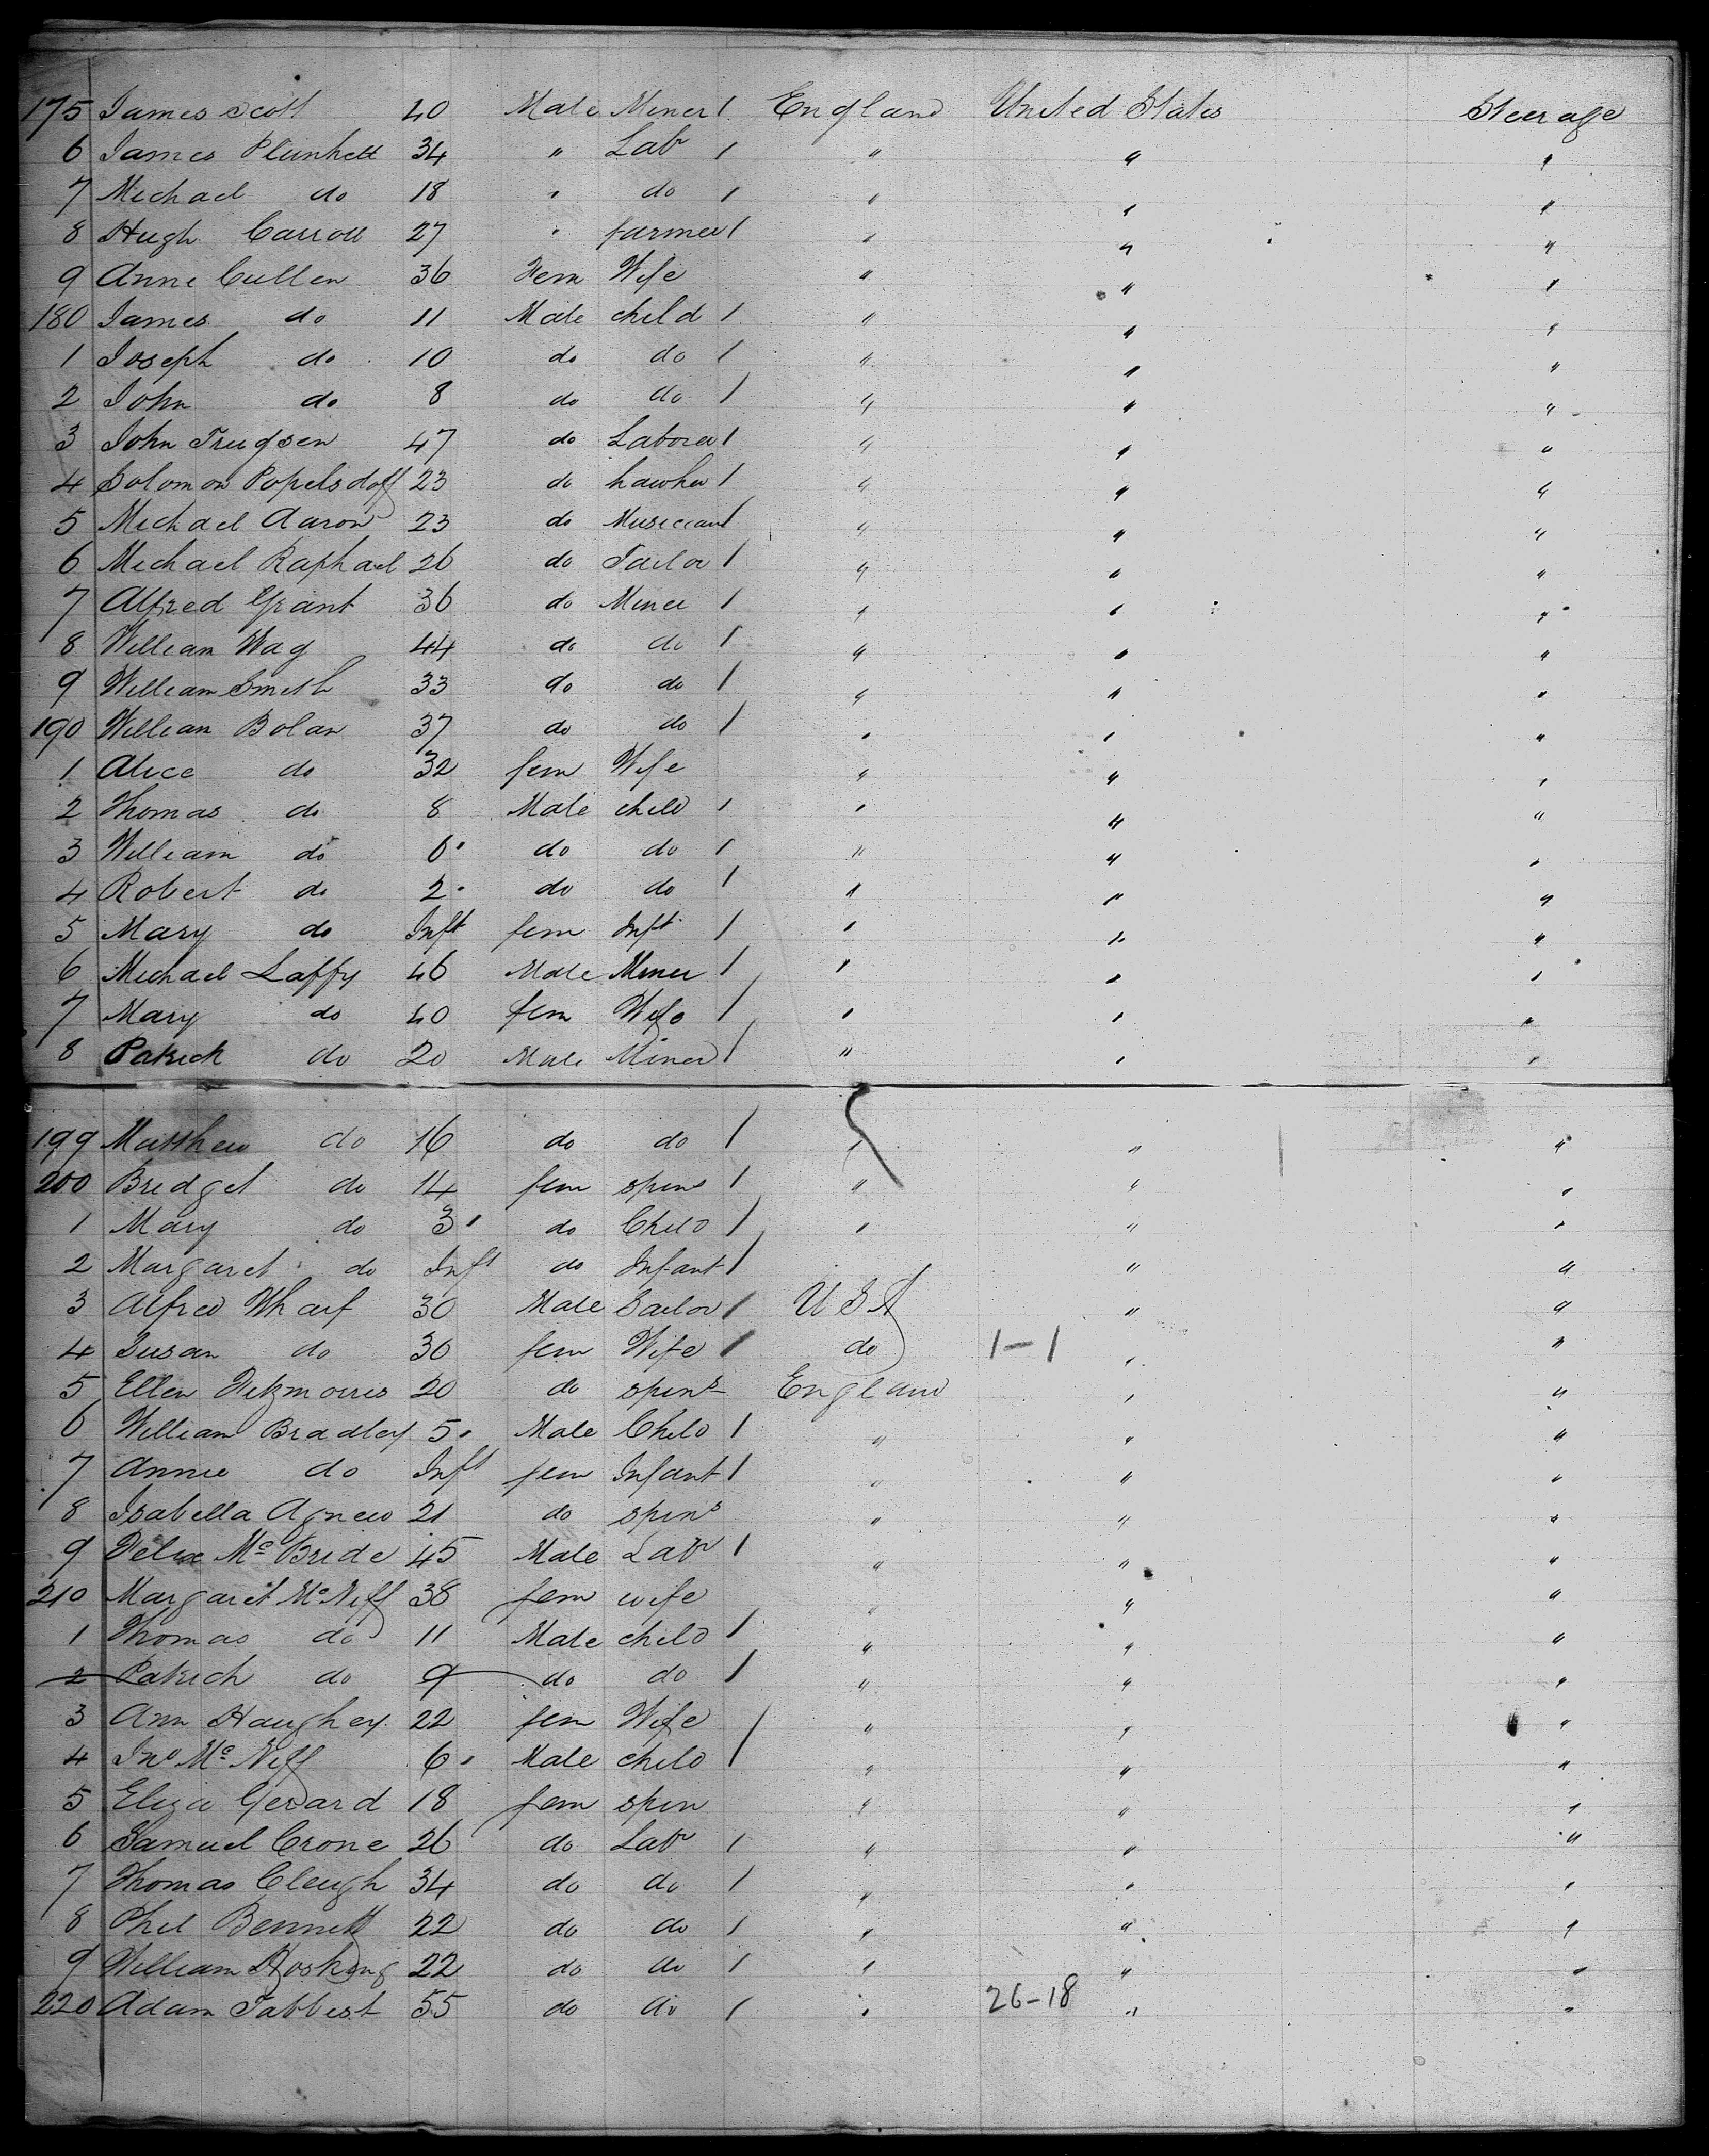 175 James Scott 40 Male Miner 1 England United States Steerage
6 James Plunkett 34 " Labr 1 " " "
7 Michael do 18 " do 1 " " "
8 Hugh Carroll 27 " farmer 1 " " "
9 Anne Cullen 36 Fem Wife " " "
180 James do 11 Male child 1 " " "
1 Joseph do 10 do do 1 " " "
2 John do 8 do do 1 " " "
3 John Trugsen 47 do Laborer 1 " " "
4 Solomon Popelsdoff 23 do hawker 1 " " "
5 Michael Aaron 23 do Musician 1 " " "
6 Michael Raphael 26 do Tailor 1 " " "
7 Alfred Grant 36 do Miner 1 " " "
8 William Wag 44 do do 1 " " "
9 William Smith 33 do do 1 " " "
190 William Bolan 37 do do 1 " " "
1 Alice do 32 fem Wife " " "
2 Thomas do 8 Male child 1 " " "
3 William do 6 do do 1 " " "
4 Robert do 2 do do 1 " " "
5 Mary do Inft fem Inft 1 " " "
6 Michael Laffy 46 Male Miner 1 " " "
7 Mary do 40 fem Wife 1 " " "
8 Patrick do 20 Male Miner 1 " " "
199 Matthew do 16 do do 1 " " "
200 Bridget do 14 fem spins 1 " " "
1 Mary do 3 do Child 1 " " "
2 Margaret do Inft do Infant 1 " "
3 Alfred Wharf 30 Male Sailor 1 U S A " "
4 Susan do 30 fem Wife 1 do 1-1 " "
5 Ellen Fitzmorris 20 do spins England " "
6 William Bradley 5 Male Child 1 " " "
7 Annie do Inft fem Infant 1 " " "
8 Isabella Agnew 21 do spins " " "
9 Felix Mc Bride 45 Male Labr 1 " " "
210 Margaret Mc Niff 38 fem wife " " "
1 Thomas do 11 Male child 1 " " "
2 Patrick do 9 do do 1 " " "
3 Ann Haughey 22 fem Wife 1 " " "
4 Jno Mc Niff 6 Male child 1 " " "
5 Eliza Gerard 18 fem spin " " "
6 Samuel Crone 26 do Labr 1 " " "
7 Thomas Cleugh 34 do do 1 " " "
8 Phil Bennett 22 do do 1 " " "
9 William Hosking 22 do do 1 " " "
220 Adam Tabbest 55 do do 1 " 26-18 " "